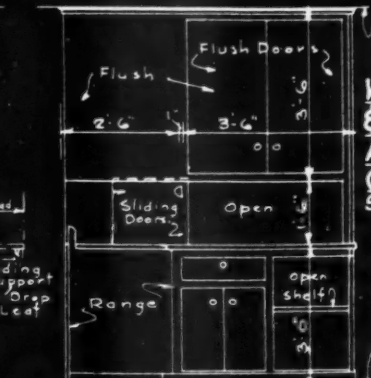 Flush Doors
Flush
2'-6"
1"
3'-6"
3'-6"
Sliding
Doors
Open
1'-6"
Open
shelf
Range
3'-0"
Drop
Leaf